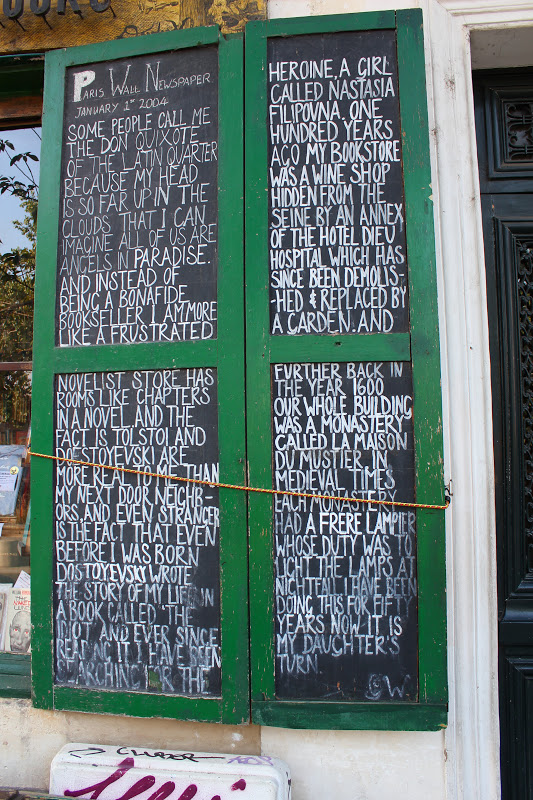 PARIS WALL NEWSPAPER
JANUARY 1ST 2004
SOME PEOPLE CALL ME
THE DON QUIXOTE
OF THE LATIN QUARTER
BECAUSE MY HEAD
IS SO FAR UP IN THE
CLOUDS THAT I CAN
IMAGINE ALL OF US ARE
ANGELS IN PARADISE.
AND INSTEAD OF
BEING A BONAFIDE
BOOKSELLER I AM MORE
LIKE A FRUSTRATED
NOVELIST. STORE HAS
ROOMS LIKE CHAPTERS
IN A NOVEL AND THE
FACT IS TOLSTOI AND
DOSTOYEVSKI ARE
MORE REAL TO ME THAN
MY NEXT DOOR NEIGHB-
-ORS, AND EVEN STRANGER
IS THE FACT THAT EVEN
BEFORE I WAS BORN
DOSTOYEVSKY WROTE
THE STORY OF MY LIFE IN
A BOOK CALLED 'THE
IDIOT' AND EVER SINCE
READING IT I HAVE BEEN
SEARCHING FOR THE
HEROINE, A GIRL
CALLED NASTASIA
FILIPOVNA. ONE
HUNDRED YEARS
AGO MY BOOKSTORE
WAS A WINE SHOP
HIDDEN FROM THE
SEINE BY AN ANNEX
OF THE HOTEL DIEU
HOSPITAL WHICH HAS
SINCE BEEN DEMOLIS-
-HED & REPLACED BY
A GARDEN. AND
FURTHER BACK IN
THE YEAR 1600
OUR WHOLE BUILDING
WAS A MONASTERY
CALLED LA MAISON
DU MUSTIER. IN
MEDIEVAL TIMES
EACH MONASTERY
HAD A FRERE LAMPIER
WHOSE DUTY WAS TO
LIGHT THE LAMPS AT
NIGHTFALL. I HAVE BEEN
DOING THIS FOR FIFTY
YEARS NOW IT IS
MY DAUGHTER'S
TURN.
GW